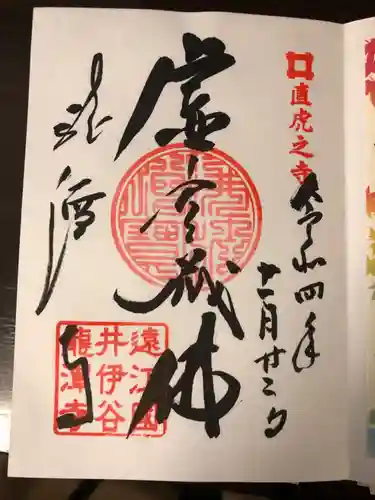 直虎之寺
令和四年
十一月廿二日
虚空蔵佛
龍潭寺
遠江國
井伊谷
龍潭寺